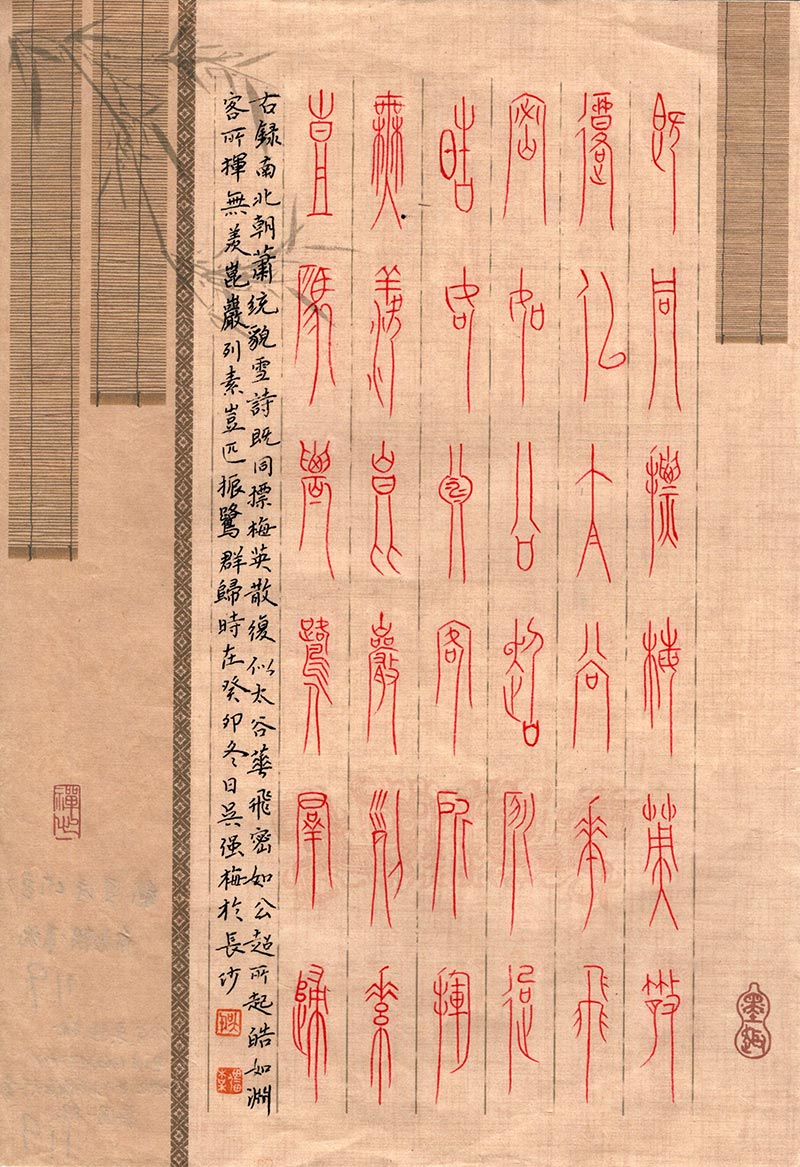 既同摽梅英散
復似太谷華飛
密如公超所起
皓如淵客所揮
無羨崑巖列素
豈匹振鷺群歸
右錄南北朝蕭統貌雪詩既同摽梅英散復似太谷華飛密如公超所起皓如淵
客所揮無羨崑巖列素豈匹振鷺群歸時在癸卯冬日吳强梅於長沙